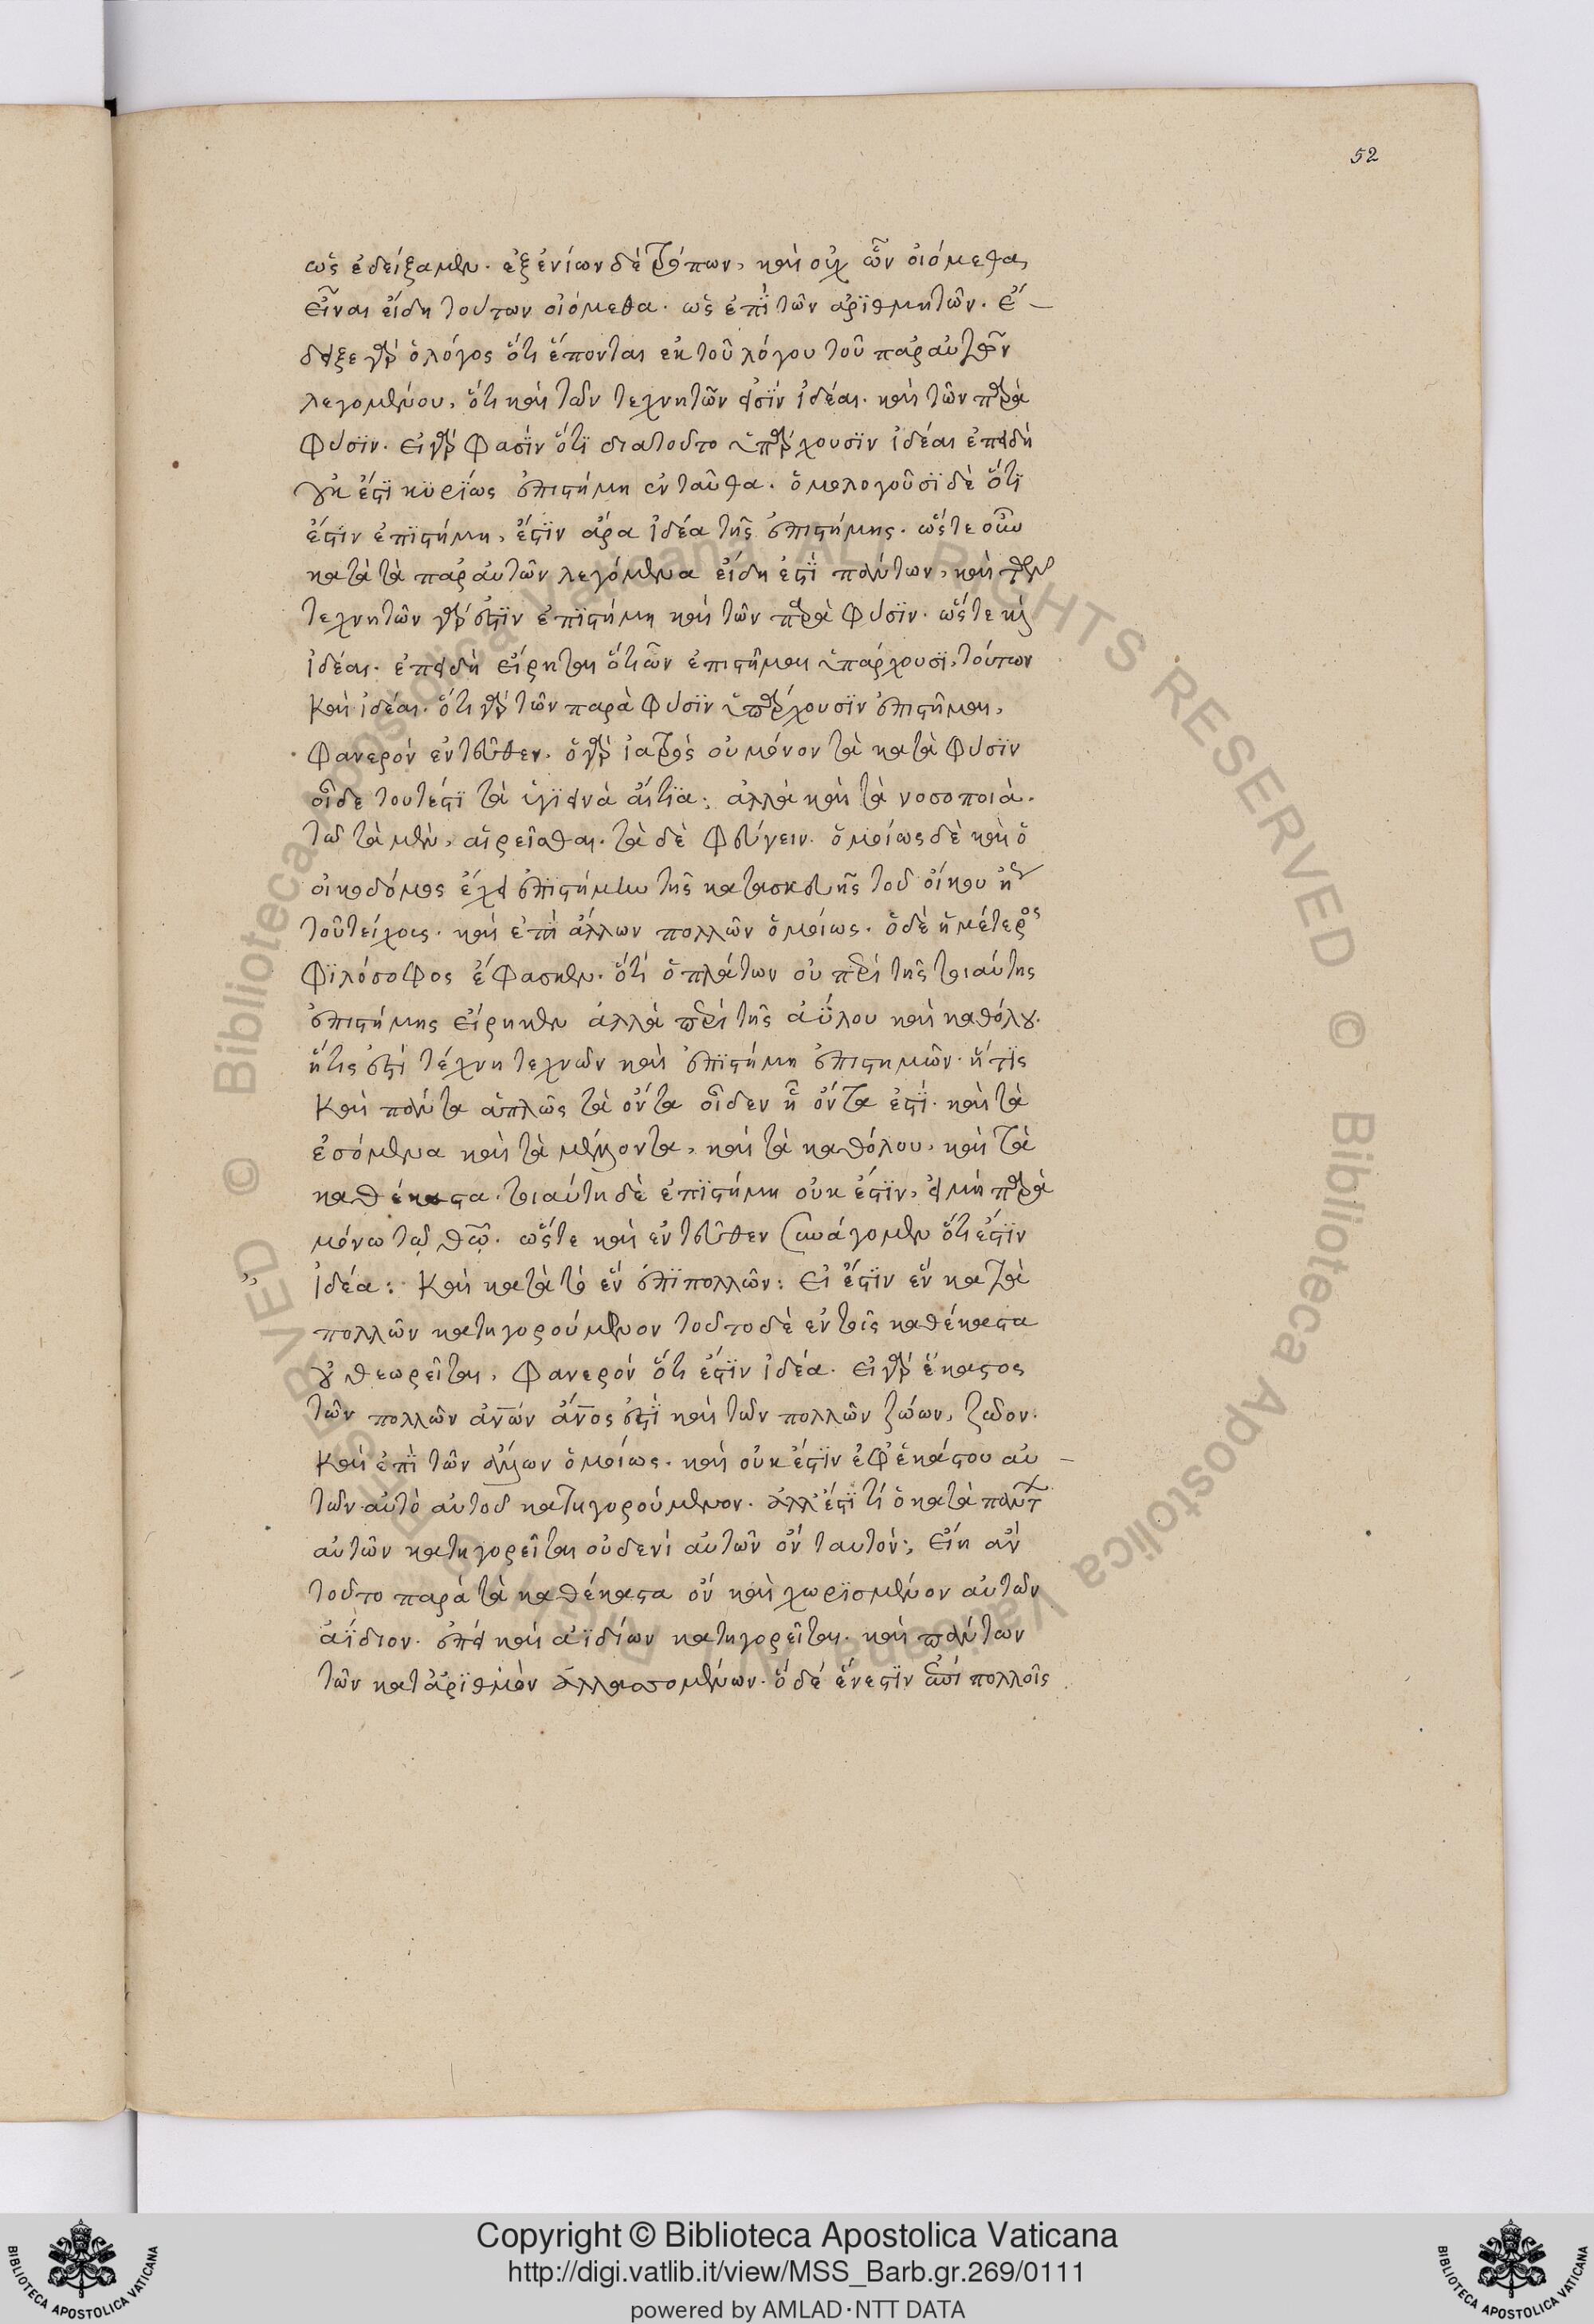 52
ὡς ἐδείξαμεν. ἐξ ἐνίων δὲ τρόπων, καὶ οὐχ ὧν οἰόμεθα,
εἶναι εἴδη τούτων οἰόμεθα. ὡς ἐπὶ τῶν ἀρϊθμητῶν. ἔ-
δειξε γὰρ ὁ λόγος ὅτι ἕπονται ἐκ τοῦ λόγου τοῦ παρ αὐτῶν
λεγομένου, ὅτι καὶ τῶν τεχνητῶν εἰσὶν ἰδέαι. καὶ τῶν παρὰ
φύσϊν. εἰ γὰρ φασὶν ὅτϊ διατοῦτο ὑπάρχουσϊν ἰδέαι ἐπειδὴ
οὐκ ἔστϊ κϋρϊως ἐπιστήμη ἐνταῦθα. ὁμολογοῦσϊ δὲ ὅτϊ
ἔστϊν ἐπϊστήμη, ἔστϊν ἄρα ἰδέα τῆς ἐπιστήμης. ὥστε οὖν
κατὰ τὰ παρ αὐτῶν λεγόμενα εἴδη ἐστὶ πάντων, καὶ τῶν
τεχνητῶν γάρ ἐστϊν ἐπϊστήμη καὶ τῶν παρὰ φύσϊν. ὥστε καὶ
ἰδέαι. ἐπειδὴ εἴρηται ὅτι ὧν ἐπιστῆμαι ὑπάρχουσϊ, τούτων
καὶ ἰδέαι. ὅτι γὰρ τῶν παρὰ φύσϊν ὑπάρχουσϊν ἐπιστῆμαι,
φανερὸν ἐντεῦθεν. ὁ γὰρ ἰατρὸς οὐ μόνον τὰ κατὰ φύσϊν
οἶδε τουτέστϊ τὰ ὑγϊεινὰ αἴτϊα: ἀλλὰ καὶ τὰ νοσοποιὰ.
τῶ τὰ μὲν, αἱρεῖσθαι. τὰ δὲ φεύγειν. ὁμοίως δὲ καὶ ὁ
οἰκοδόμος ἔχει ἐπϊστήμην τῆς κατασκευῆς τοῦ οἴκου ἢ
τοῦ τείχους. καὶ ἐπὶ ἄλλων πολλῶν ὁμοίως. ὁ δὲ ἡμέτερος
φϊλόσοφος ἔφασκεν. ὅτι ὁ πλάτων οὐ περὶ τῆς τοιαύτης
ἐπιστήμης εἴρηκεν ἀλλὰ περὶ τῆς ἀΰλου καὶ καθόλου.
ἥτις ἐστὶ τέχνη τεχνῶν καὶ ἐπϊστήμη ἐπιστημῶν. ἥτϊς
καὶ πάντα ἁπλῶς τὰ ὄντα οἶδεν ἧ ὄντα ἐστὶ. καὶ τὰ
ἐσόμενα καὶ τὰ μέλλοντα, καὶ τὰ καθόλου, καὶ τὰ
καθέκαστα. τοιαύτη δὲ ἐπϊστήμη οὐκ ἔστϊν, εἰ μὴ παρὰ
μόνω τῶ θῶ. ὥστε καὶ ἐντεῦθεν συνάγομεν ὅτι ἐστϊν
ἰδέα: καὶ κατὰ τὸ ἓν ἐπϊπολλῶν: εἰ ἔστϊν ἓν κατὰ
πολλῶν κατηγορούμενον τοῦτο δὲ ἐν τοῖς καθέκαστα
οὐ θεωρεῖται, φανερὸν ὅτι ἔστϊν ἰδέα. εἰ γὰρ ἕκαστος
τῶν πολλῶν ἀνῶν ἄνος ἐστὶ καὶ τῶν πολλῶν ζώων, ζῶον.
καὶ ἐπὶ τῶν ἄλλων ὁμοίως. καὶ οὐκ ἔστϊν ἐφ ἑκάστου αὐ-
τῶν αὐτὸ αὑτοῦ κατηγορούμενον. ἀλλ' ἔστϊ τί ὃ κατὰ πάντ
αὐτῶν κατηγορεῖται οὐδενὶ αὐτῶν ὂν ταυτὸν:, εἴη ἂν
τοῦτο παρὰ τὰ καθέκαστα ὂν καὶ χωρϊσμένον αὐτῶν
ἀΐδιον. ἐπεὶ καὶ ἀϊδίων κατηγορεῖται. καὶ πάντων
τῶν κατ ἀρϊθμὸν ἀλλασσομένων. ὃ δέ ἕνεστϊν ἐπὶ πολλοῖς
Copyright © Biblioteca Apostolica Vaticana
http://digi.vatlib.it/view/MSS_Barb.gr.269/0111
powered by AMLAD·NTT DATA